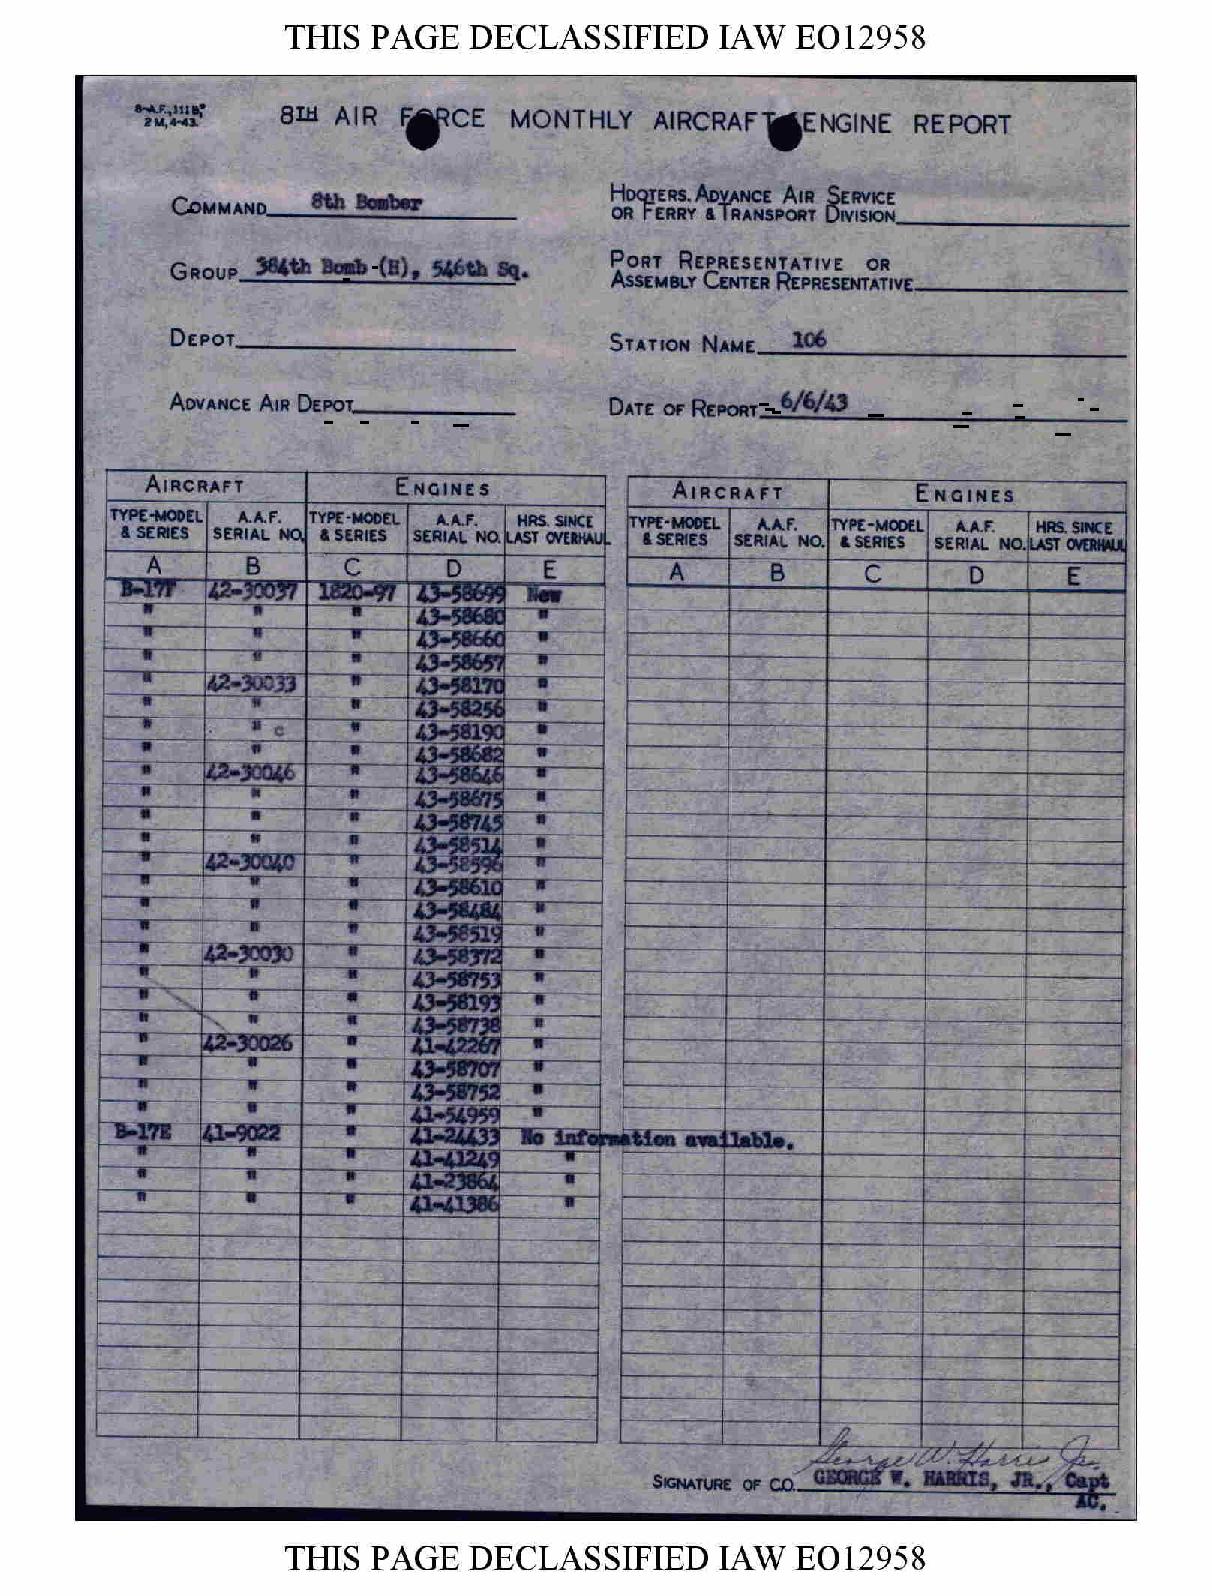 THIS PAGE DECLASSIFIED IAW EO12958
8-A.F.,111B,
2 M,4-43.
8TH AIR FORCE MONTHLY AIRCRAFT ENGINE REPORT
COMMAND 8th Bomber
HDQTERS. ADVANCE AIR SERVICE
OR FERRY & TRANSPORT DIVISION
GROUP 384th Bomb -(H), 546th Sq.
PORT REPRESENTATIVE OR
ASSEMBLY CENTER REPRESENTATIVE
DEPOT
STATION NAME 106
ADVANCE AIR DEPOT
DATE OF REPORT 6/6/43
AIRCRAFT ENGINES AIRCRAFT ENGINES
TYPE-MODEL & SERIES A.A.F. SERIAL NO. TYPE-MODEL & SERIES A.A.F. SERIAL NO. HRS. SINCE LAST OVERHAUL TYPE-MODEL & SERIES A.A.F. SERIAL NO. TYPE-MODEL & SERIES A.A.F. SERIAL NO. HRS. SINCE LAST OVERHAUL
A B C D E A B C D E
B-17F 42-30037 1820-97 43-58699 New
" " " 43-58680 "
" " " 43-58660 "
" " " 43-58657 "
" 42-30033 " 43-58170 "
" " " 43-58256 "
" " c " 43-58190 "
" " " 43-58682 "
" 42-30046 " 43-58646 "
" " " 43-58675 "
" " " 43-58745 "
" " " 43-58514 "
" 42-30040 " 43-58596 "
" " " 43-58610 "
" " " 43-58484 "
" " " 43-58519 "
" 42-30030 " 43-58372 "
" " " 43-58753 "
" " " 43-58193 "
" " " 43-58738 "
" 42-30026 " 41-42267 "
" " " 43-58707 "
" " " 43-58752 "
" " " 41-54959 "
B-17E 41-9022 " 41-24433 No information available.
" " " 41-41249 "
" " " 41-23864 "
" " " 41-41386 "
George W. Harris Jr.
SIGNATURE OF C.O. GEORGE W. HARRIS, JR., Capt
AC.
THIS PAGE DECLASSIFIED IAW EO12958